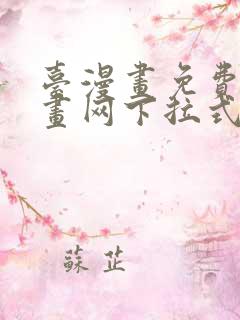 臺漫畫免費
畫网下拉式
蘇芷